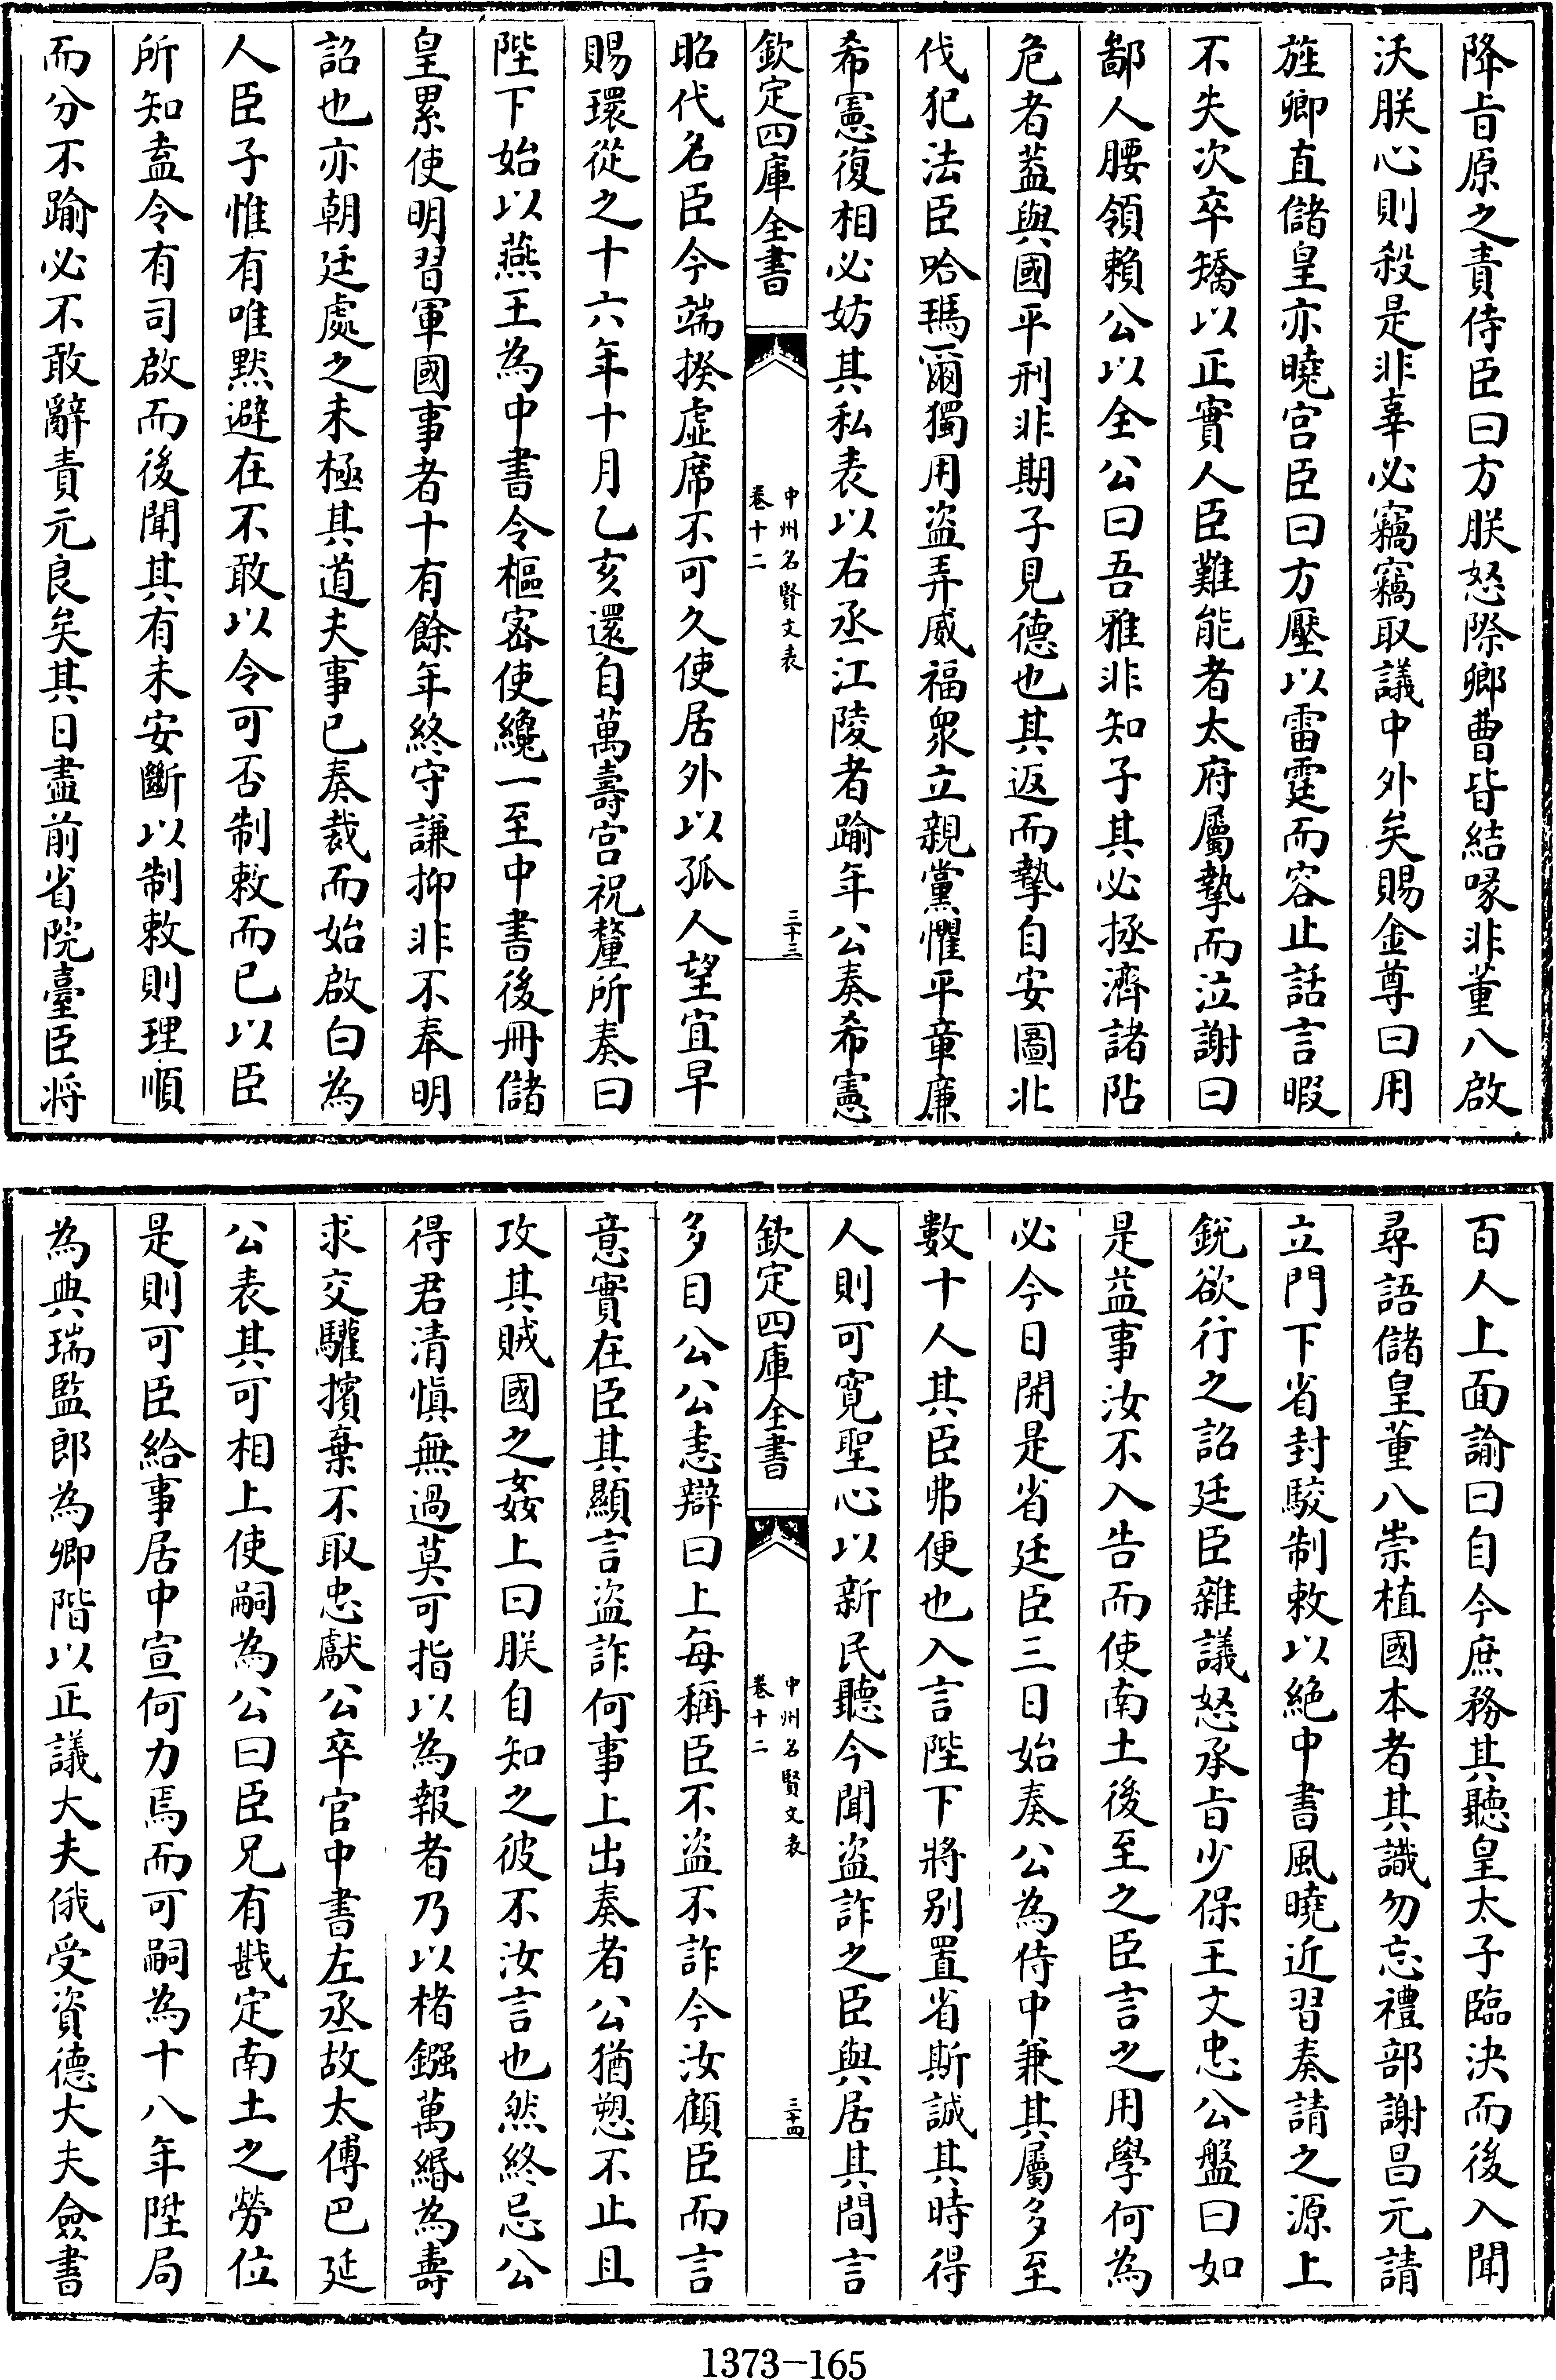 降旨原之責侍臣曰方朕怒際卿曹皆結喙非董八啟
沃朕心則殺是非辜必竊竊取議中外矣賜金尊曰用
旌卿直儲皇亦曉宮臣曰方壓以雷霆而容止話言暇
不失次卒矯以正實人臣難能者太府屬摯而泣謝曰
鄙人腰領賴公以全公曰吾雅非知子其必拯濟諸阽
危者蓋與國平刑非期子見德也其返而摯自安圖北
伐犯法臣哈瑪爾獨用盜弄威福眾立親黨懼平章廉
希憲復相必妨其私表以右丞江陵者踰年公奏希憲
欽定四庫全書
中州名賢文表
卷十二
三十三
昭代名臣今端揆虛席不可久使居外以孤人望宜早
賜環從之十六年十月乙亥還自萬壽宮祝釐所奏曰
陛下始以燕王為中書令樞密使纔一至中書後冊儲
皇累使明習軍國事者十有餘年終守謙抑非不奉明
詔也亦朝廷處之未極其道夫事已奏裁而始啟白為
人臣子惟有唯默避在不敢以令可否制敕而已以臣
所知盍令有司啟而後聞其有未安斷以制敕則理順
而分不踰必不敢辭責元良矣其日盡前省院臺臣將
百人上面諭曰自今庶務其聽皇太子臨決而後入聞
尋語儲皇董八崇植國本者其識勿忘禮部謝昌元請
立門下省封駮制敕以絶中書風曉近習奏請之源上
銳欲行之詔廷臣雜議怒承旨少保王文忠公盤曰如
是益事汝不入告而使南土後至之臣言之用學何為
必今日開是省廷臣三日始奏公為侍中兼其屬多至
數十人其臣弗便也入言陛下將别置省斯誠其時得
人則可寬聖心以新民聽今聞盜詐之臣與居其間言
欽定四庫全書
中州名賢文表
卷十二
三十四
多目公公恚辯曰上每稱臣不盜不詐今汝顧臣而言
意實在臣其顯言盜詐何事上出奏者公猶愬不止且
攻其賊國之姦上曰朕自知之彼不汝言也然終忌公
得君清慎無過莫可指以為報者乃以楮鏹萬緡為壽
求交驩擯棄不取忠獻公卒官中書左丞故太傅巴延
公表其可相上使嗣為公曰臣兄有戡定南土之勞位
是則可臣給事居中宣何力焉而可嗣為十八年陞局
為典瑞監郎為卿階以正議大夫俄受資德大夫僉書
1373-165